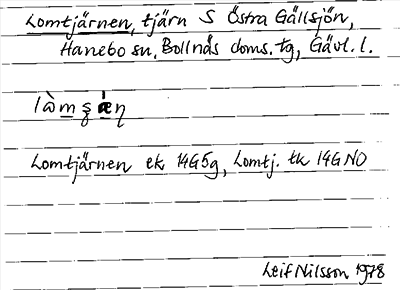 Lomtjärnen, tjärn S Östra Gällsjön,
Hanebo sn. Bollnäs doms. tg, Gävl. l.
Lomtjärnen ek 14G5g, Lomtj. tk 14G NO
Leif Nilsson 1978